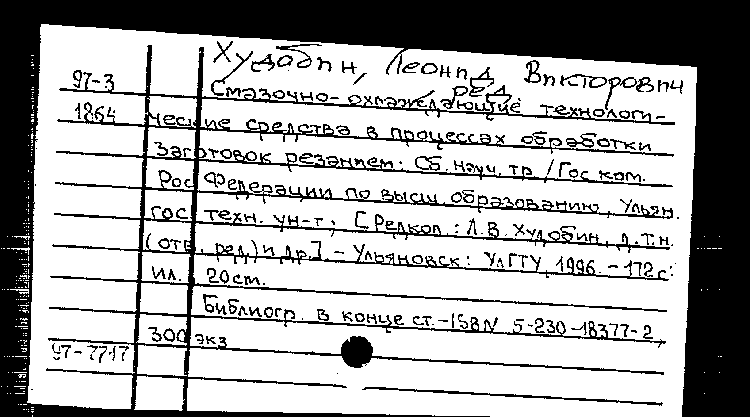 Худобин, Леонид Викторович
ред.
97-3 Смазочно-охлаждающие технологи-
1864 ческие средства в процессах обработки
заготовок резанием: Сб. науч. тр. / Гос ком.
Рос. Федерации по высш. образованию, Ульян.
гос. техн. ун-т; [Редкол.: Л.В. Худобин, д.т.н.
(отв. ред.) и др.]. - Ульяновск: УлГТУ, 1996. - 172 с.:
ил.; 20 см.
Библиогр. в конце ст. - ISBN 5-230-18377-2,
300 экз
97-7717